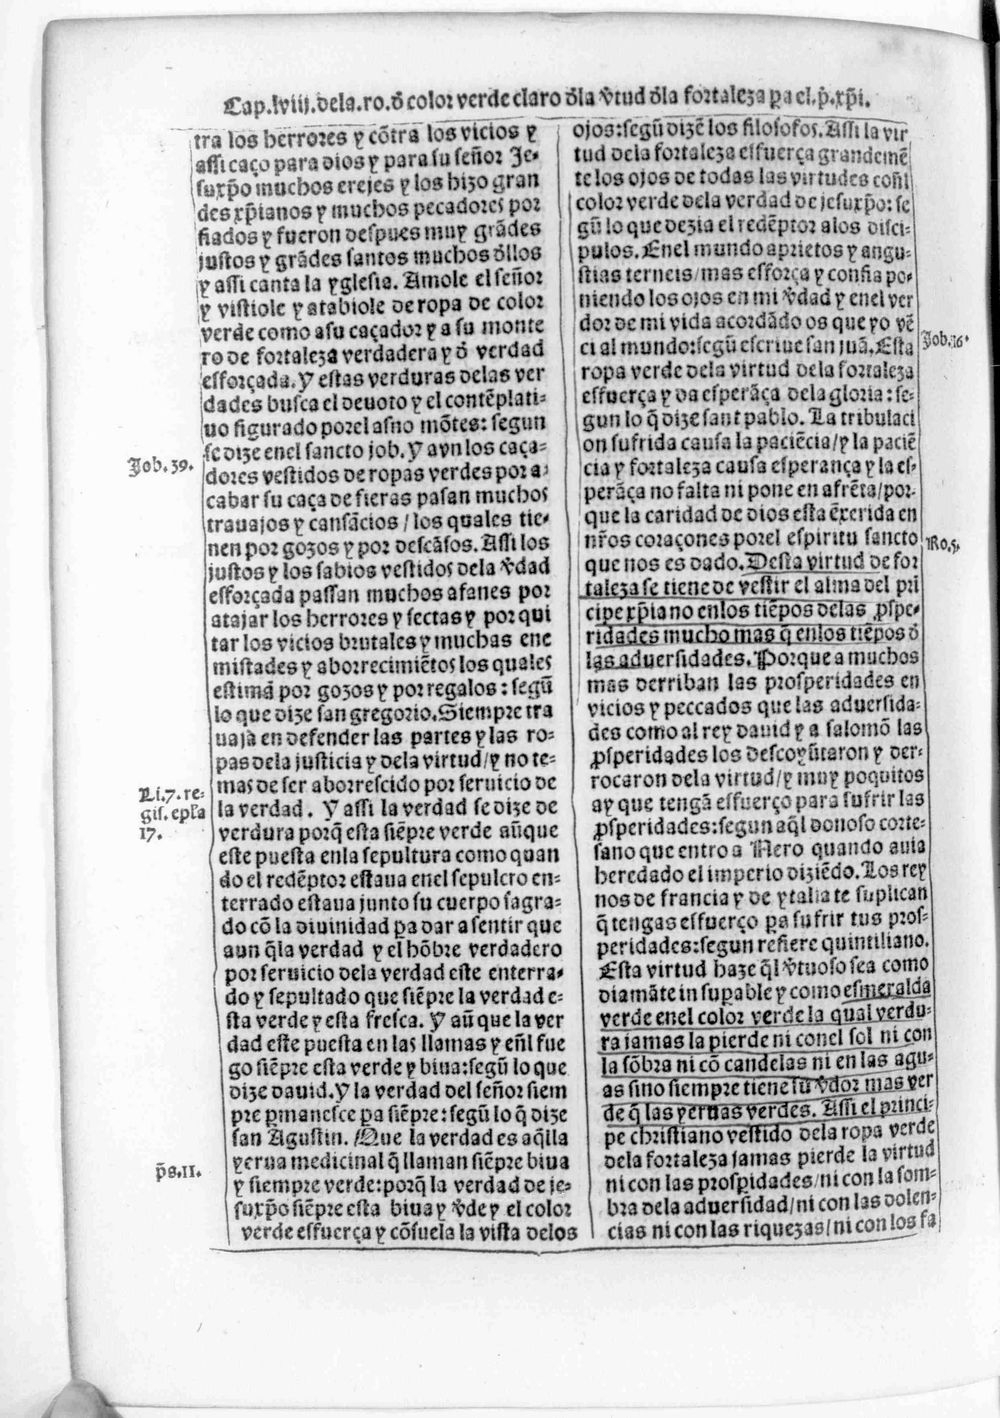 Cap.lviij.dela.ro.ð color verde claro ðla v̄tud ðla fortaleza p̱a el.p̄.xp̄i.
tra los herrores y cõtra los vicios y
assi caço para dios y para su señor Je-
suxp̄o muchos erejes y los hizo gran
des xp̄ianos y muchos pecadores por
fiados y fueron despues muy grãdes
justos y grãdes santos muchos ðllos
y assi canta la yglesia. Amole el señor
y vistiole y atabiole de ropa de color
verde como asu caçador y a su monte
ro de fortaleza verdadera y ð verdad
esforçada. Y estas verduras delas ver
dades busca el deuoto y el contẽplati-
uo figurado porel asno mõtes: segun
se dize enel sancto job. Y avn los caça-
Job.39.
dores vestidos de ropas verdes por a-
cabar su caça de fieras pasan muchos
trauajos y cansãcios / los quales tie-
nen por gozos y por descãsos. Assi los
justos y los sabios vestidos dela v̄dad
esforçada passan muchos afanes por
atajar los herrores y sectas y por qui
tar los vicios brutales y muchas ene
mistades y aborrecimiẽtos los quales
estimã por gozos y por regalos: segũ
lo que dize san gregorio. Siempre tra
uajã en defender las partes y las ro-
pas dela justicia y dela virtud/y no te-
mas de ser aborrescido por seruicio de
Li.7.re-
gis.epľa
17.
la verdad. Y assi la verdad se dize de
verdura porq̃ esta siẽpre verde aũque
este puesta enla sepultura como quan
do el redẽptor estaua enel sepulcro en-
terrado estaua junto su cuerpo sagra-
do cõ la diuinidad p̱a dar a sentir que
aun q̃la verdad y el hõbre verdadero
por seruicio dela verdad este enterra-
do y sepultado que siẽpre la verdad e-
sta verde y esta fresca. Y aũ que la ver
dad este puesta en las llamas y eñl fue
go siẽpre esta verde y biua: segũ lo que
dize dauid. Y la verdad del señor siem
pre p̱manesce p̱a siẽpre: segũ lo q̃ dize
san Agustin. Que la verdad es aq̃lla
yerua medicinal q̃ llaman siẽpre biua
p̄s.11.
y siempre verde: porq̃ la verdad de je-
suxp̄o siẽpre esta biua y v̄de y el color
verde esfuerça y cõsuela la vista delos
ojos: segũ dizẽ los filosofos. Assi la vir
tud dela fortaleza esfuerça grandemẽ
te los ojos de todas las virtudes coñl
color verde dela verdad de jesuxp̄o: se
gũ lo que dezia el redẽptor a los disci-
pulos. Enel mundo aprietos y angu-
stias terneis/mas esforça y confia po-
niendo los ojos en mi v̄dad y enel ver
dor de mi vida acordãdo os que yo vẽ
ci al mundo: segũ escriue san juã. Esta
Job.16.
ropa verde dela virtud dela fortaleza
esfuerça y da esperãça dela gloria: se-
gun lo q̃ dize sant pablo. La tribulaci
on sufrida causa la paciẽcia/y la paciẽ
cia y fortaleza causa esperança y la es-
perãça no falta ni pone en afrẽta/por-
que la caridad de dios esta ẽxerida en
nr̃os coraçones porel espiritu sancto
Ro.5.
que nos es dado. Desta virtud de for
taleza se tiene de vestir el alma del prĩ
cipe xp̄iano enlos tiẽpos delas p̱spe-
ridades mucho mas q̃ enlos tiẽpos ð
las aduersidades. Porque a muchos
mas derriban las prosperidades en
vicios y peccados que las aduersida-
des como al rey dauid y a salomõ las
p̱speridades los descoyũtaron y der-
rocaron dela virtud/y muy poquitos
ay que tengã esfuerço para sufrir las
p̱speridades: segun aq̃l donoso corte-
sano que entro a Nero quando auia
heredado el imperio diziẽdo. Los rey
nos de francia y de ytalia te suplican
q̃ tengas esfuerço p̱a sufrir tus pros-
peridades: segun refiere quintiliano.
Esta virtud haze q̃l v̄tuoso sea como
diamãte insup̱able y como esmeralda
verde enel color verde la qual verdu-
ra jamas la pierde ni conel sol ni con
la sõbra ni cõ candelas ni en las agu-
as sino siempre tiene su v̄dor mas ver
de q̃ las yeruas verdes. Assi el princi-
pe christiano vestido dela ropa verde
dela fortaleza jamas pierde la virtud
ni con las prosp̱idades/ni con la som-
bra dela aduersidad/ni con las dolen-
cias ni con las riquezas/ni con los fa